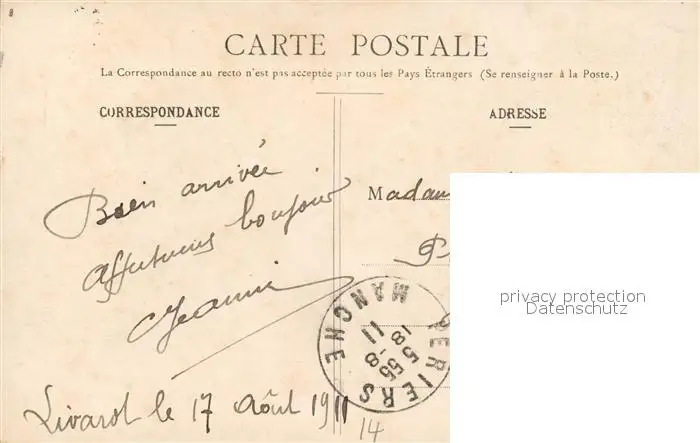 CARTE POSTALE
La Correspondance au recto n'est pas acceptée par tous les Pays Étrangers (Se renseigner à la Poste.)
CORRESPONDANCE
ADRESSE
Bien arrivée
Affectueux bonjour
Jeanne
Livarot le 17 Août 1911
14
Madam
P
PERIERS
MANCHE
5 55
18 - 8
11
privacy protection
Datenschutz